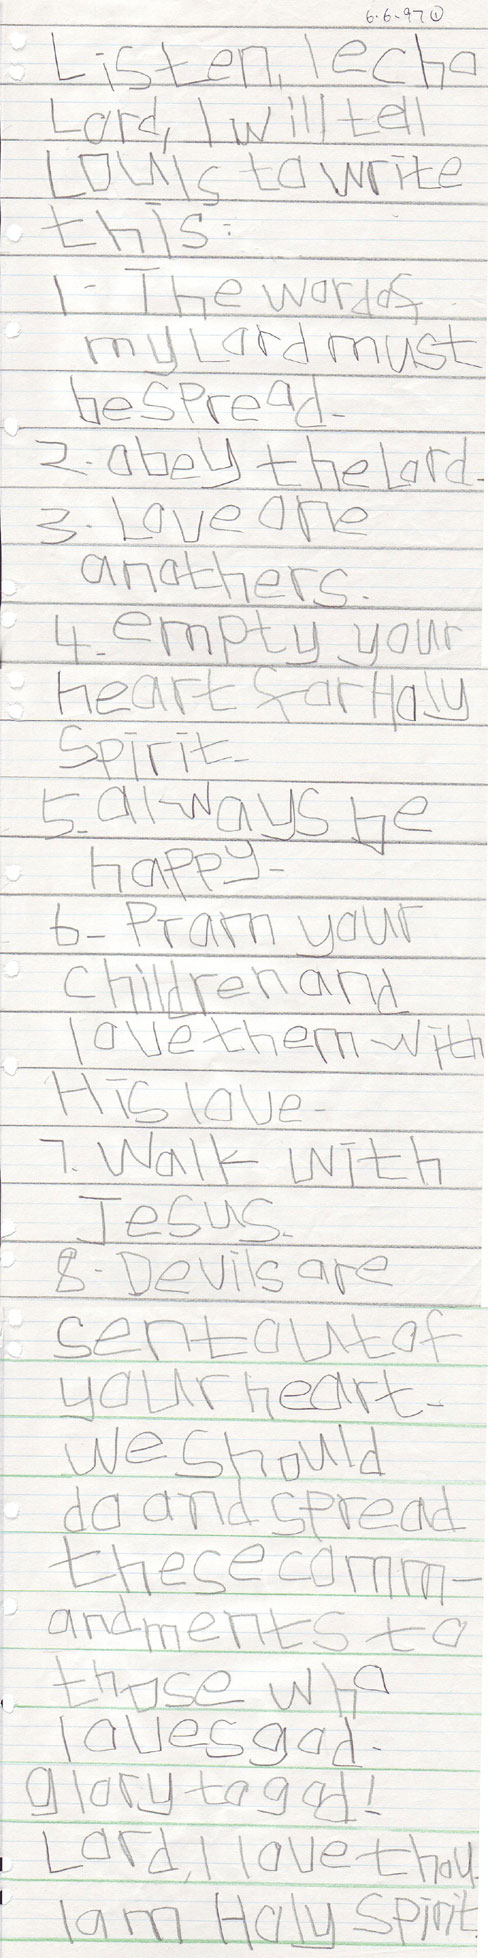 6.6.97 ①
Listen, I echo
Lord, I will tell
Louis to write
this:
1- The word of
my Lord must
be spread.
2. obey the Lord.
3. Love one
anothers.
4. empty your
heart for Holy
Spirit.
5. always be
happy.
6- Pram your
children and
love them with
His love.
7. Walk with
Jesus.
8- Devils are
sent out of
your heart.
we should
do and spread
these comm-
andments to
those who
loves god.
glory to god!
Lord, I love thou.
I am Holy Spirit.